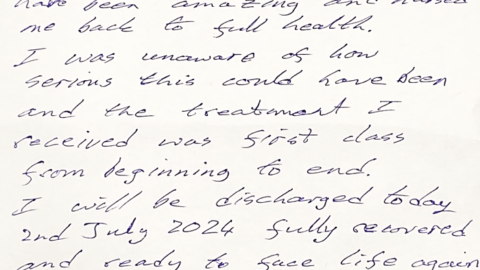 have been amazing and nursed
me back to full health.
I was unaware of how
serious this could have been
and the treatment I
received was first class
from beginning to end.
I will be discharged today
2nd July 2024 fully recovered
and ready to face life again